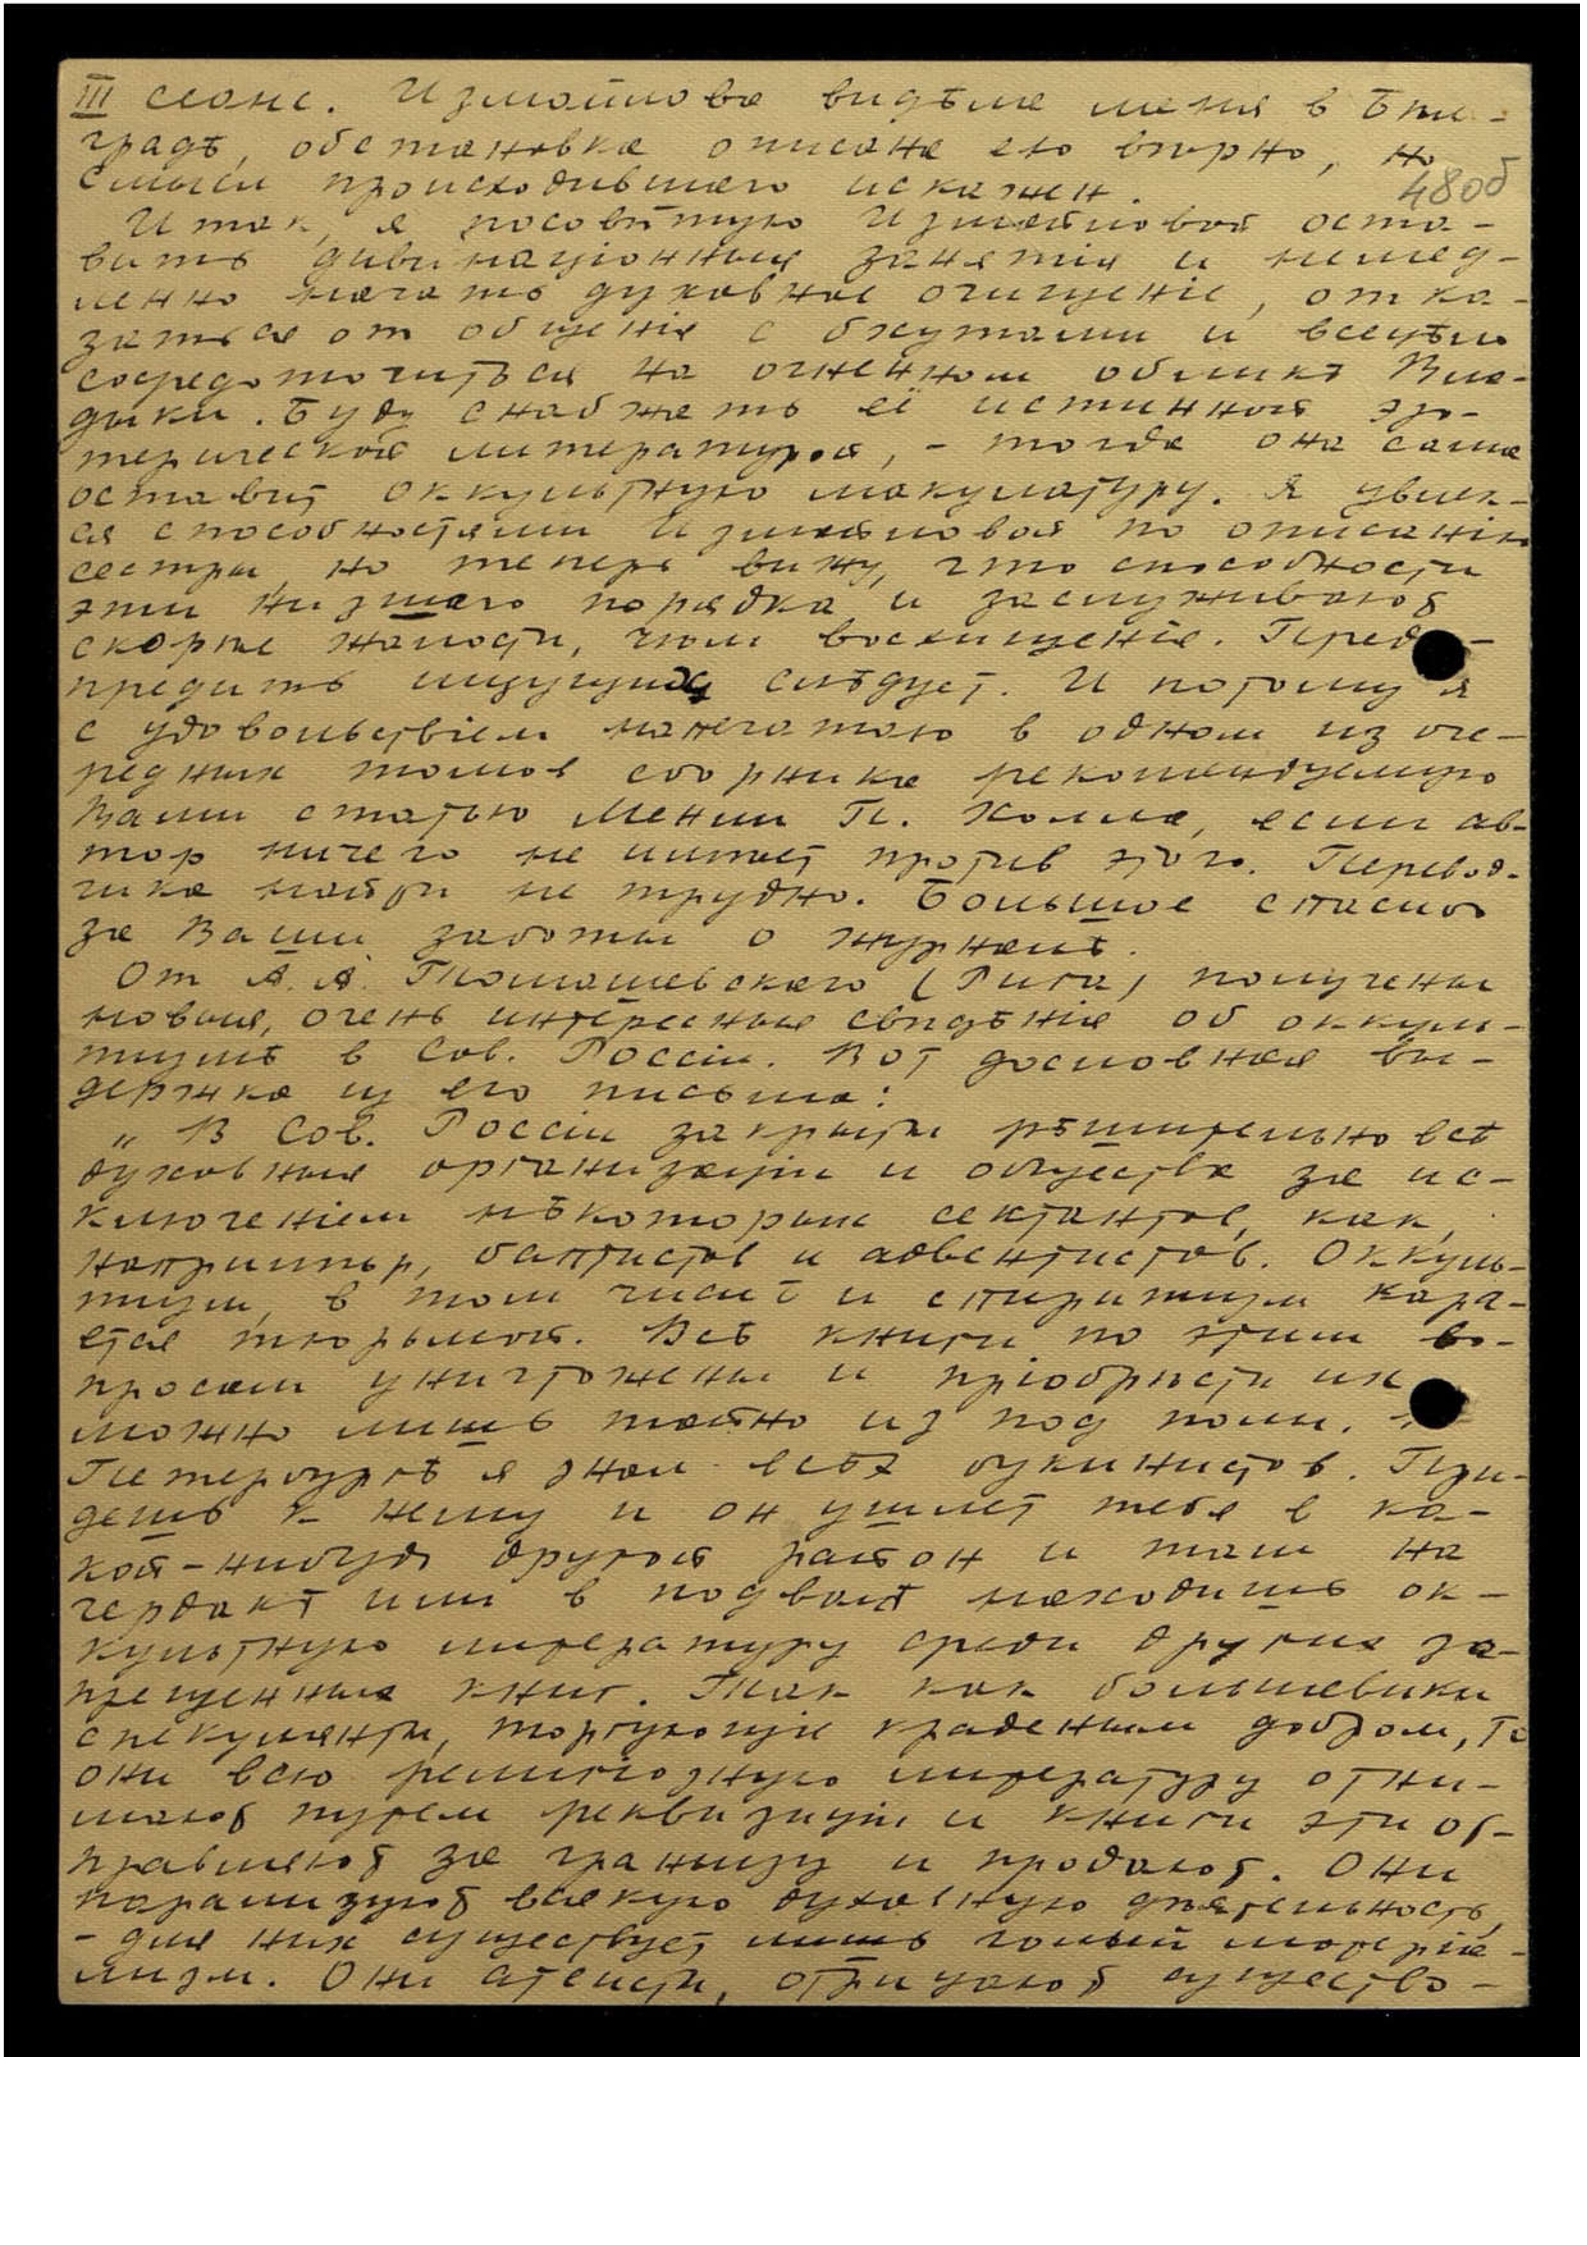 III сеанс. Измайлова видѣла меня в Бѣл-
градѣ, обстановка описана ею вѣрно, но
смысл происходившаго искажен.
480б
Итак, я посовѣтую Измайловой оста-
вить дивинаціонныя занятія и немед-
ленно начать духовное очищеніе, отка-
заться от общенія с бхутами и всецѣло
сосредоточиться на огненном обликѣ Вла-
дыки. Буду снабжать её истинной эзо-
терической литературой, - тогда она сама
оставит оккультную макулатуру. Я увлек-
ся способностями Измайловой по описанію
сестры, но теперь вижу, что способности
эти низшаго порядка и заслуживают
скорѣе жалости, чѣм восхищенія. Пред-
предить ищущих слѣдует. И потому я
с удовольствіем напечатаю в одном из оче-
редных томов сборника рекомендуемую
Вами статью Менли П. Холла, если ав-
тор ничего не имѣет против этого. Перевод-
чика найти не трудно. Большое спасибо
за Ваши заботы о журналѣ.
От А. А. Томашевскаго (Рига) получены
новыя, очень интересныя свѣдѣнія об оккуль-
тизмѣ в Сов. Россіи. Вот дословная вы-
держка из его письма:
„В Сов. Россіи закрыты рѣшительно всѣ
духовныя организаціи и общества за ис-
ключеніем нѣкоторых сектантов, как,
напримѣр, баптистов и адвентистов. Оккуль-
тизм, в том числѣ и спиритизм кара-
ется тюрьмой. Всѣ книги по этим во-
просам уничтожены и пріобрѣсти их
можно лишь тайно из под полы.
Петербургѣ я знал всѣх букинистов. При-
дешь к нему и он ушлет тебя в ка-
кой-нибудь другой район и там на
чердакѣ или в подвалѣ находишь ок-
культную литературу среди других за-
прещенных книг. Так как большевики
спекулянты, торгующіе краденым добром, то
они всю религіозную литературу отни-
мают путем реквизиціи и книги эти от-
правляют за границу и продают. Они
парализуют всякую духовную дѣятельность,
- для них существует лишь голый матеріа-
лизм. Они атеисты, отрицают существо-